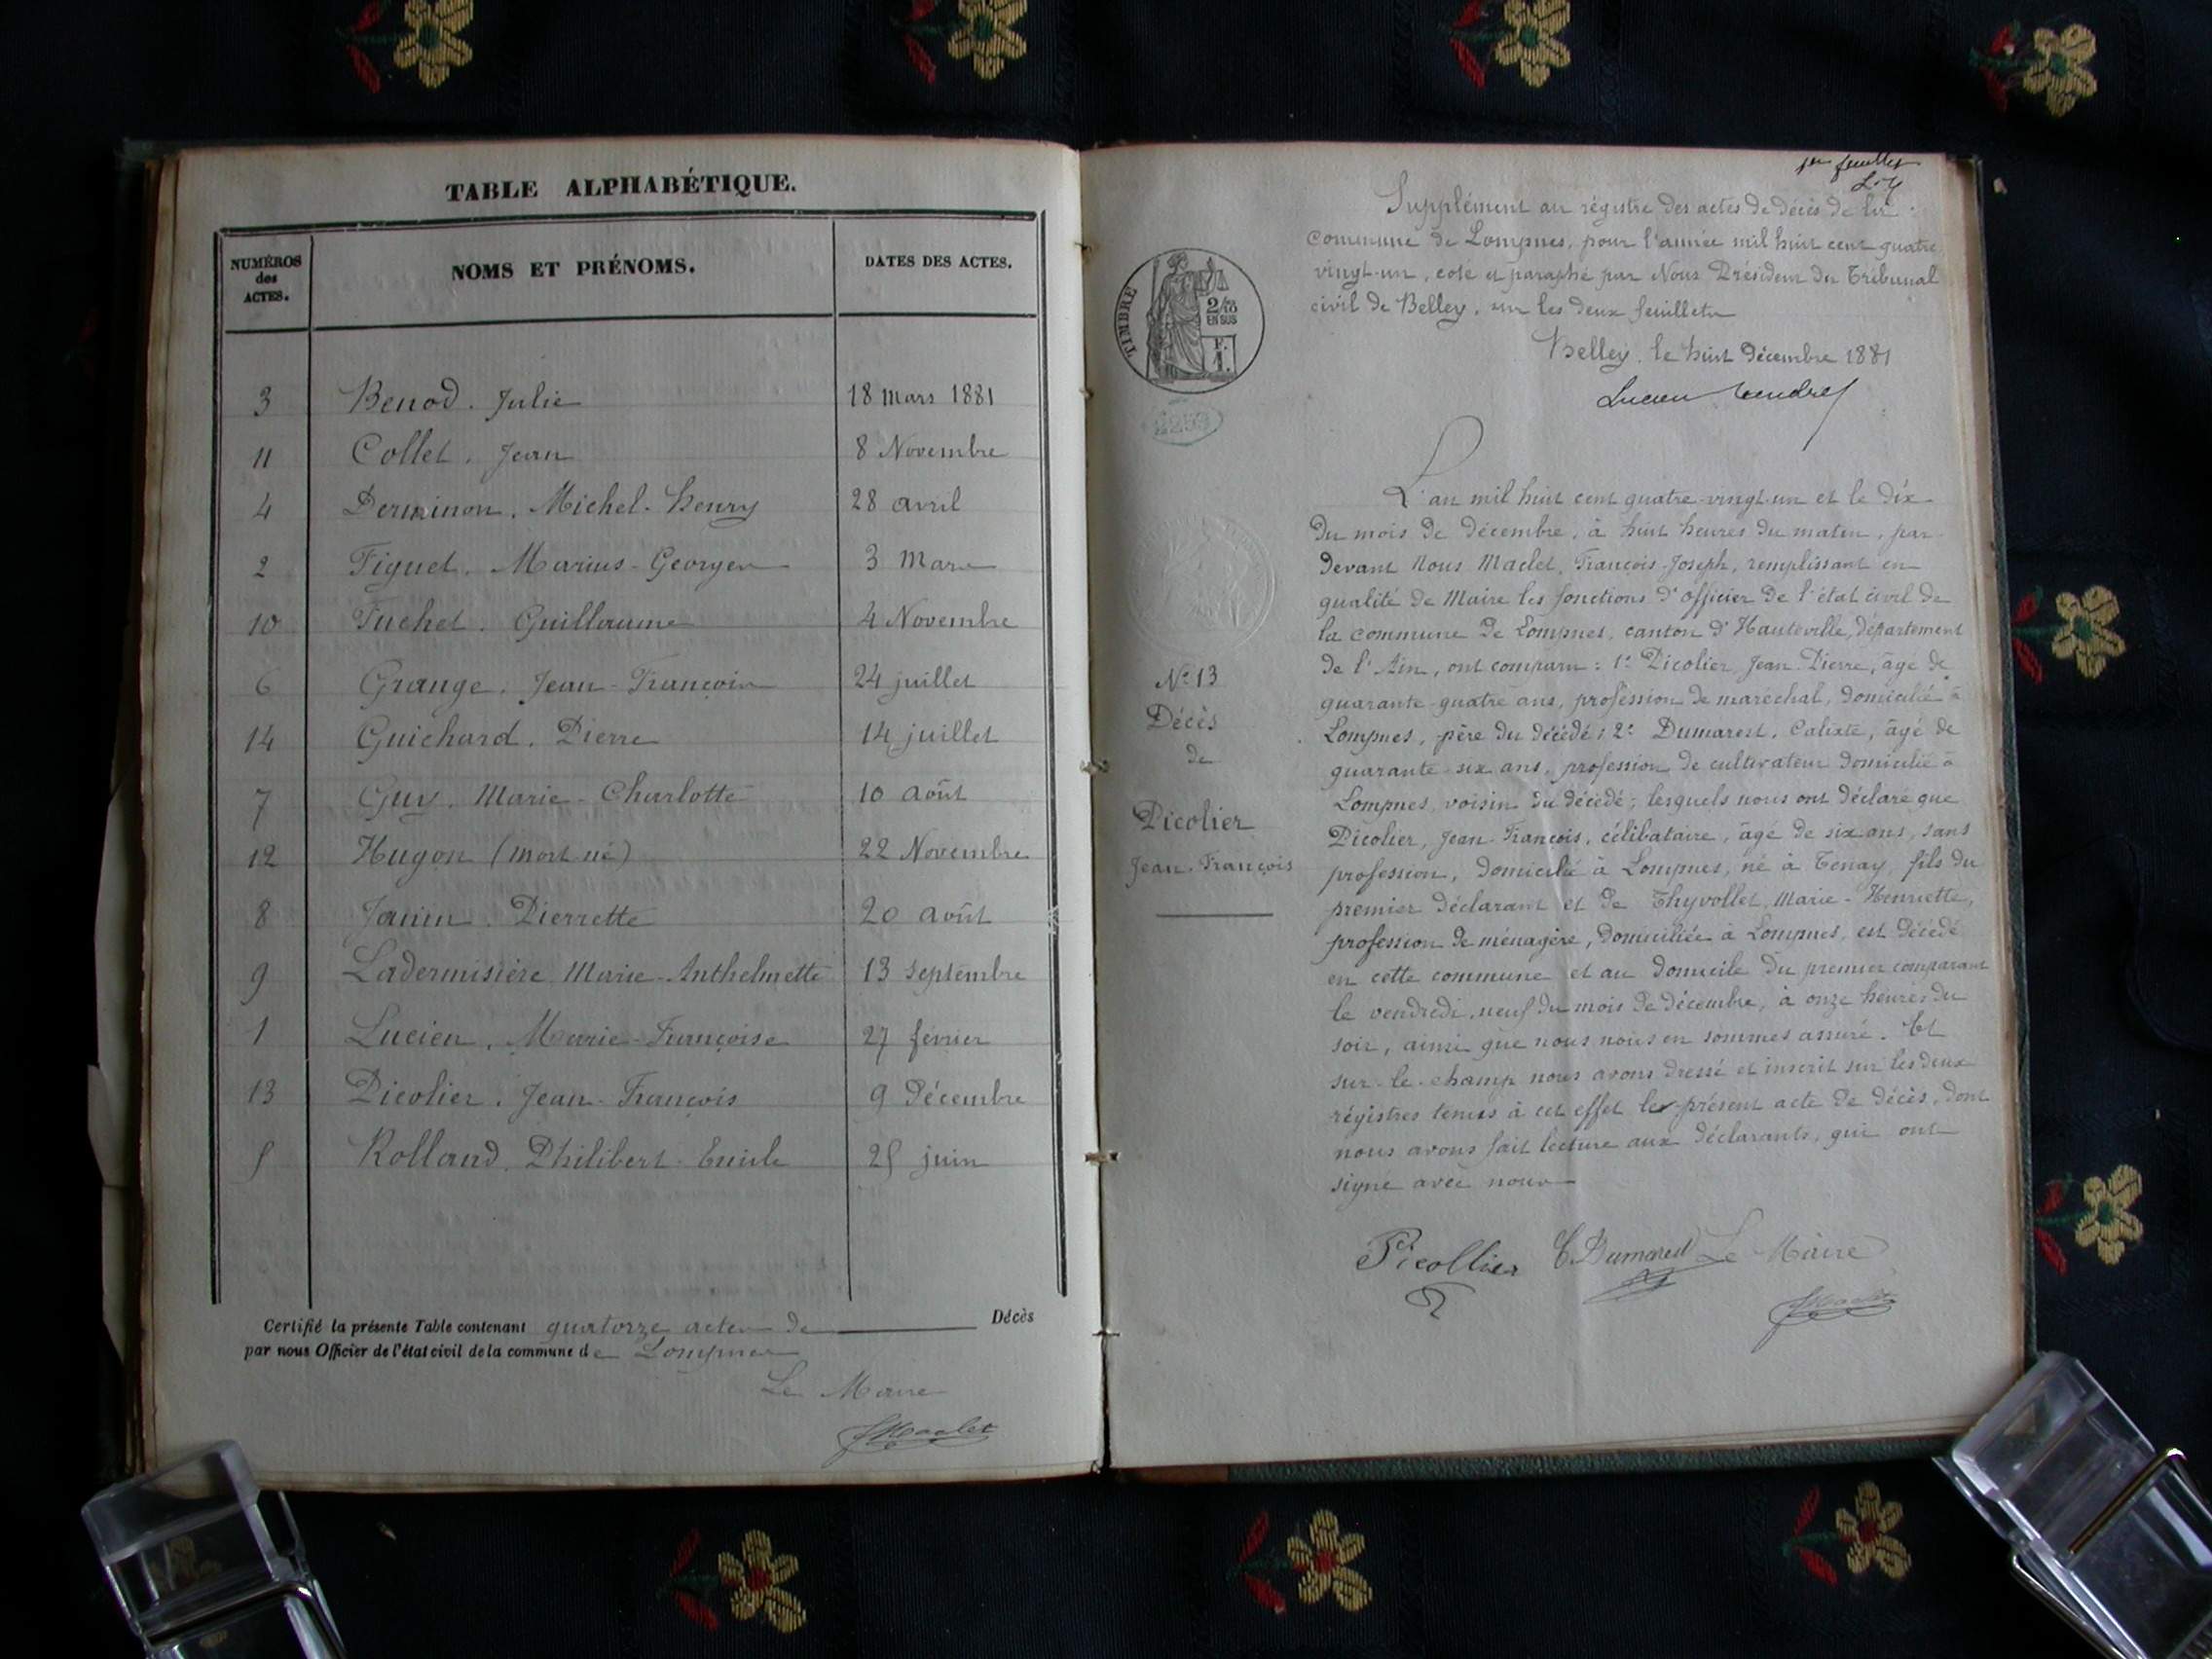 TABLE ALPHABÉTIQUE.
NUMÉROS des ACTES. NOMS ET PRÉNOMS. DATES DES ACTES.
3 Benod. Julie 18 mars 1881
11 Collet. Jean 8 Novembre
4 Derminon. Michel-henry 28 avril
2 Figuet. Marius-Georges 3 Mars
10 Fuchet. Guillaume 4 Novembre
6 Grange. Jean-François 24 juillet
14 Guichard. Pierre 14 juillet
7 Guy. Marie-Charlotte 10 août
12 Hugon (mort né) 22 Novembre
8 Janin. Pierrette 20 août
9 Ladermisière Marie-Anthelmette 13 septembre
1 Lucien. Marie-Françoise 27 février
13 Picolier. Jean-François 9 Décembre
5 Rolland. Philibert-Emile 25 juin
Certifié la présente Table contenant quatorze actes de Décès
par nous Officier de l'état civil de la commune de Lompnes
Le Maire
Maclet
1er feuillet
Supplément au régistre des actes de décès de la
commune de Lompnes, pour l'année mil huit cent quatre
vingt-un, coté et paraphé par Nous Président du Tribunal
civil de Belley, sur les deux feuillets
Belley, le huit décembre 1881
Lucien
TIMBRE
2/10
EN SUS
F.
1.
L'an mil huit cent quatre-vingt-un et le dix
du mois de décembre, à huit heures du matin, par
devant Nous Maclet, François-Joseph, remplissant en
qualité de Maire les fonctions d'officier de l'état civil de
la commune de Lompnes, canton d'Hauteville, département
de l'Ain, ont comparu : 1° Picolier Jean-Pierre, âgé de
quarante-quatre ans, profession de maréchal, domicilié à
Lompnes, père du décédé; 2° Dumarest, Calixte, âgé de
quarante-six ans, profession de cultivateur domicilié à
Lompnes, voisin du décédé; lesquels nous ont déclaré que
Picolier, Jean-François, célibataire, âgé de six ans, sans
profession, domicilié à Lompnes, né à Tenay, fils du
premier déclarant et de Thyvollet, Marie-Henriette,
profession de ménagère, domiciliée à Lompnes, est décédé
en cette commune et au domicile du premier comparant
le vendredi, neuf du mois de décembre, à onze heures du
soir, ainsi que nous nous en sommes assuré. Et
sur-le-champ nous avons dressé et inscrit sur les deux
régistres tenus à cet effet le présent acte de décès, dont
nous avons fait lecture aux déclarants, qui ont
signé avec nous
N° 13
Décès
de
Picolier
Jean-François
Picollier C. Dumarest Le Maire
Maclet